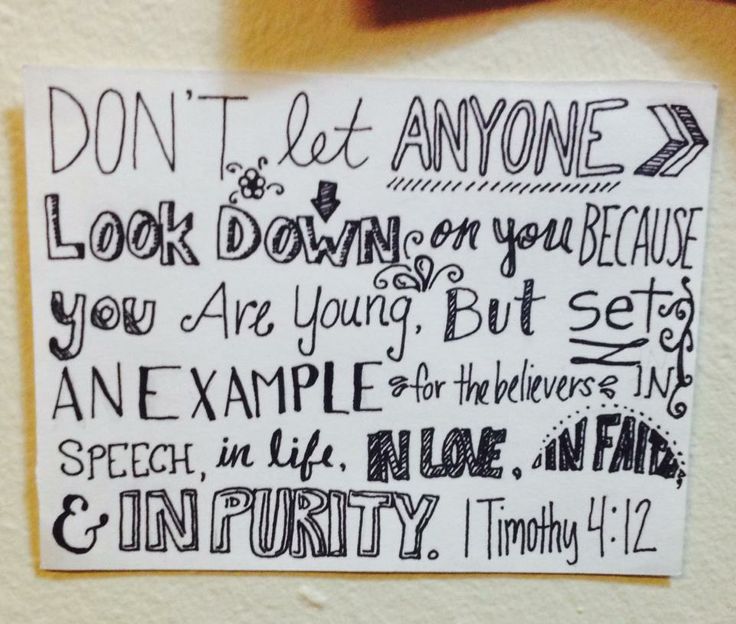 DON'T let ANYONE
LOOK DOWN on you BECAUSE
you Are Young, But set
AN EXAMPLE for the believers IN
SPEECH, in life, IN LOVE, IN FAITH,
& IN PURITY. 1 Timothy 4:12